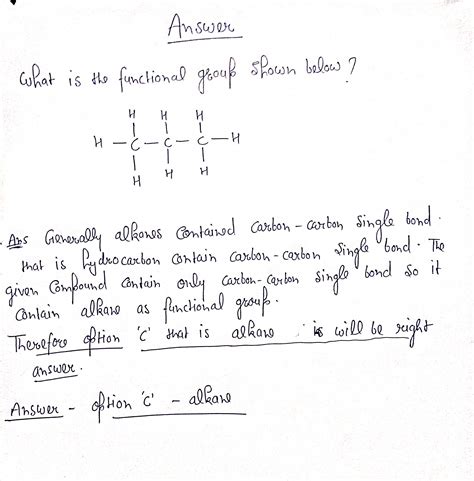 Answer
What is the functional group shown below?
H H H
| | |
H — C — C — C — H
| | |
H H H
Ans Generally alkanes contained carbon-carbon single bond.
that is hydrocarbon contain carbon-carbon single bond. The
given compound contain only carbon-carbon single bond so it
contain alkane as functional group.
Therefore option 'c' that is alkane is will be right
answer.
Answer - option 'c' - alkane